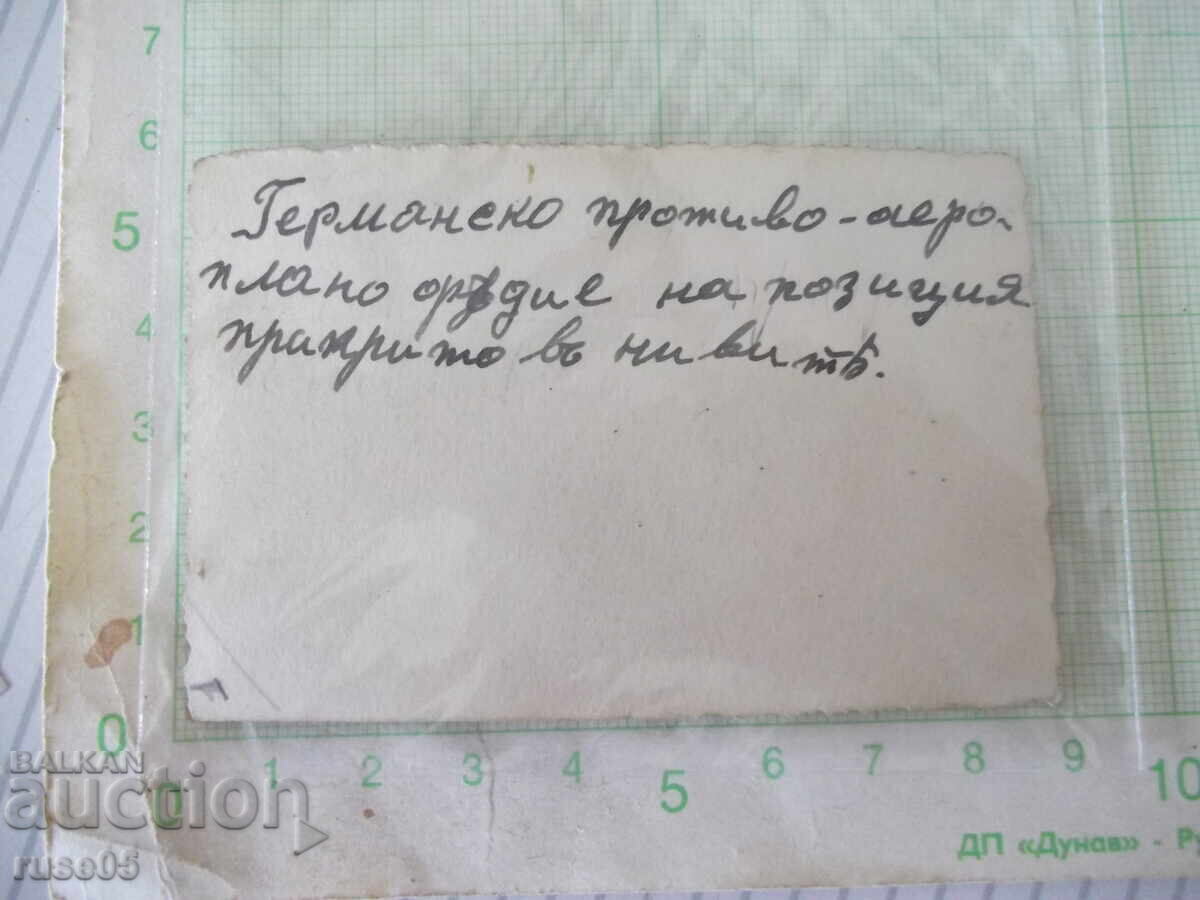 Германско противо-аеро-
плано орѫдие на позиция
прикрито въ нивитѣ.
7
6
5
4
3
2
1
0
0
1
2
3
4
5
6
7
8
9
10
ДП «Дунав» - Ру
BALKAN
auction
ruse05